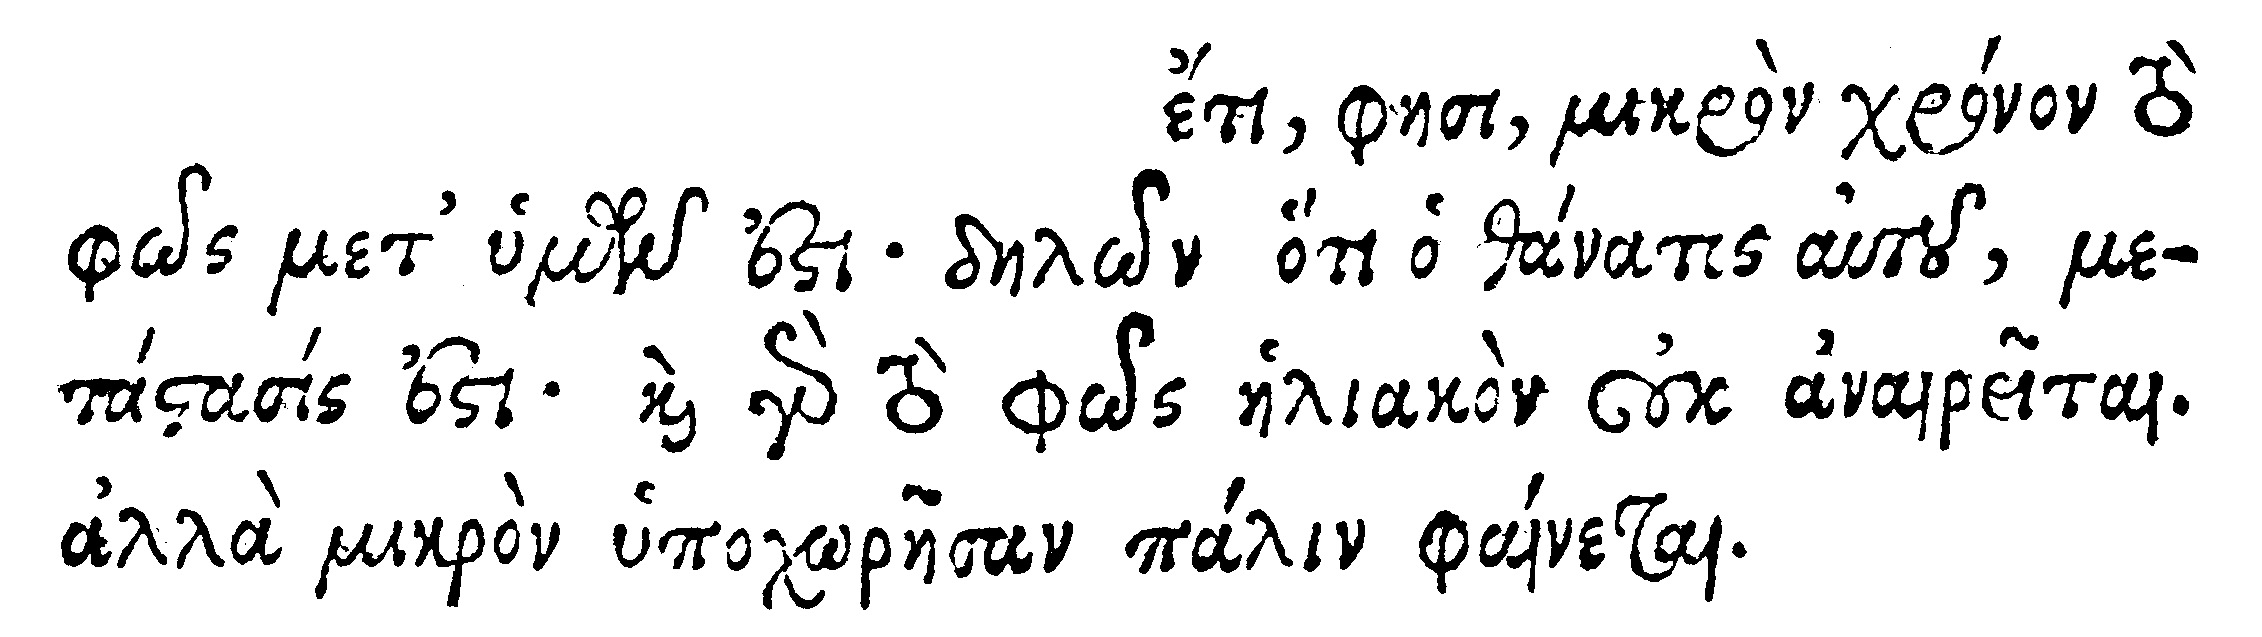 ἔτι, φησι, μικρὸν χρόνον τὸ
φῶς μεθ᾽ ὑμῶν ἐστι· δηλῶν ὅτι ὁ θάνατος αὐτοῦ, με-
τάστασίς ἐστι· καὶ γὰρ τὸ φῶς ἡλιακὸν οὐκ ἀναιρεῖται.
ἀλλὰ μικρὸν ὑποχωρῆσαν πάλιν φαίνεται.